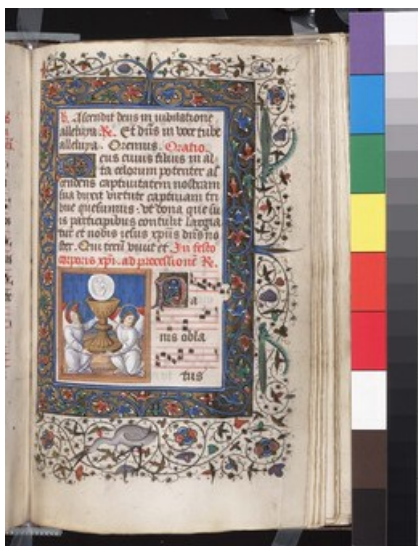 V. Ascendit deus in iubilatione
alleluya R. Et dns in voce tube
alleluya. Oremus. Oratio.
Deus cuius filius in al
ta celorum potenter as
cendens captivitatem nostram
sua duxit virtute captivam tri
bue quesumus. ut dona que su
is participibus contulit largia
tur et nobis iesus xpus dns no
ster. Qui tecu vivit et In festo
corporis xpi. ad processione R.
Pa
nis obla
tus